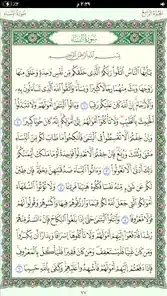 ٢:٣٩ م
سورة النساء
الجزء الرابع
سورة النساء
بسم الله الرحمن الرحيم
يا أيها الناس اتقوا ربكم الذي خلقكم من نفس واحدة وخلق منها
زوجها وبث منهما رجالا كثيرا ونساء واتقوا الله الذي تساءلون به والأرحام
إن الله كان عليكم رقيبا ١ وآتوا اليتامى أموالهم ولا تتبدلوا الخبيث
بالطيب ولا تأكلوا أموالهم إلى أموالكم إنه كان حوبا كبيرا ٢
وإن خفتم ألا تقسطوا في اليتامى فانكحوا ما طاب لكم من النساء
مثنى وثلاث ورباع فإن خفتم ألا تعدلوا فواحدة أو ما ملكت
أيمانكم ذلك أدنى ألا تعولوا ٣ وآتوا النساء صدقاتهن نحلة
فإن طبن لكم عن شيء منه نفسا فكلوه هنيئا مريئا ٤
ولا تؤتوا السفهاء أموالكم التي جعل الله لكم قياما وارزقوهم
فيها واكسوهم وقولوا لهم قولا معروفا ٥ وابتلوا اليتامى
حتى إذا بلغوا النكاح فإن آنستم منهم رشدا فادفعوا إليهم
أموالهم ولا تأكلوها إسرافا وبدارا أن يكبروا
ومن كان غنيا فليستعفف ومن كان فقيرا فليأكل بالمعروف
فإذا دفعتم إليهم أموالهم فأشهدوا عليهم وكفى بالله حسيبا ٦
٧٧